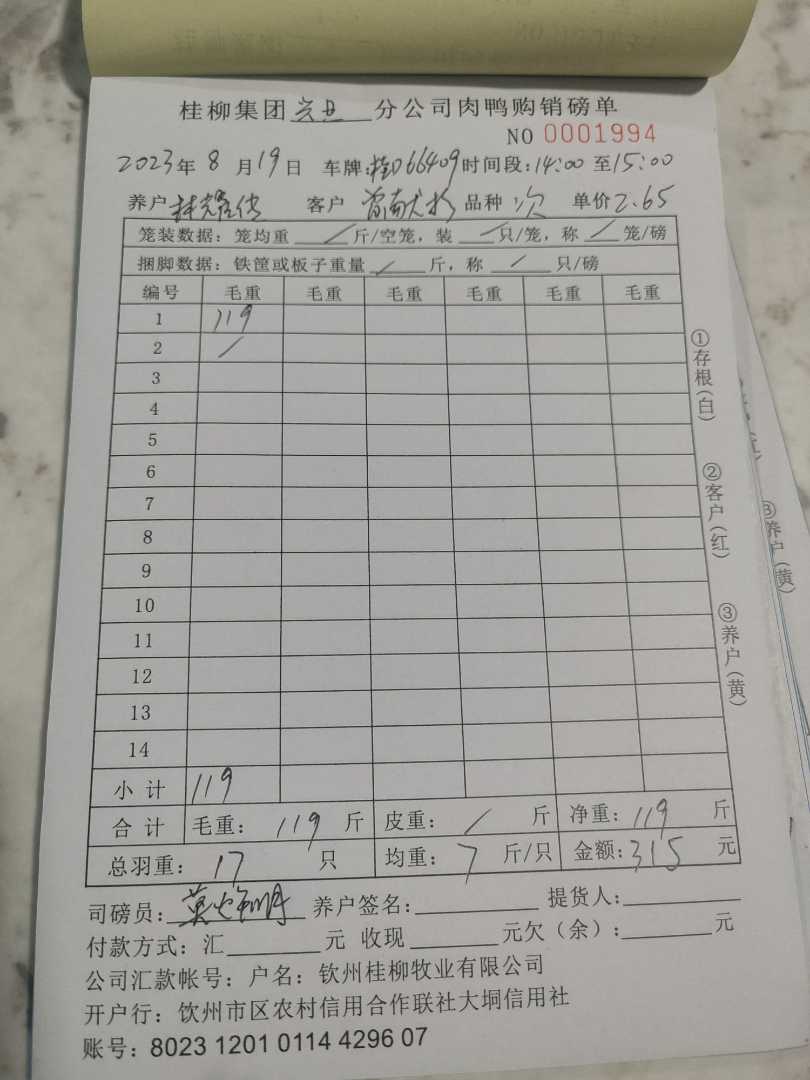 桂柳集团 分公司肉鸭购销磅单
NO 0001994
2023年 8月19日 车牌:桂D66409时间段:14:00至15:00
养户 林耀 客户 品种 次 单价2.65
笼装数据：笼均重 / 斤/空笼，装 / 只/笼，称 / 笼/磅
捆脚数据：铁筐或板子重量 / 斤，称 / 只/磅
编号 毛重 毛重 毛重 毛重 毛重 毛重
1 119
2 /
3
4
5
6
7
8
9
10
11
12
13
14
小 计 119
合 计 毛重： 119 斤 皮重： / 斤 净重： 119 斤
总羽重： 17 只 均重： 7 斤/只 金额:315 元
司磅员: 养户签名: 提货人:
付款方式：汇 元 收现 元欠（余）: 元
公司汇款帐号：户名：钦州桂柳牧业有限公司
开户行：饮州市区农村信用合作联社大垌信用社
账号：8023 1201 0114 4296 07
①存根(白)
②客户(红)
③养户(黄)
③养户(黄)